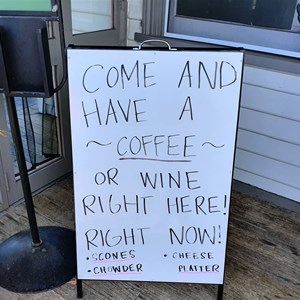 COME AND
HAVE A
~ COFFEE ~
OR WINE
RIGHT HERE!
RIGHT NOW!
• SCONES • CHEESE
• CHOWDER PLATTER